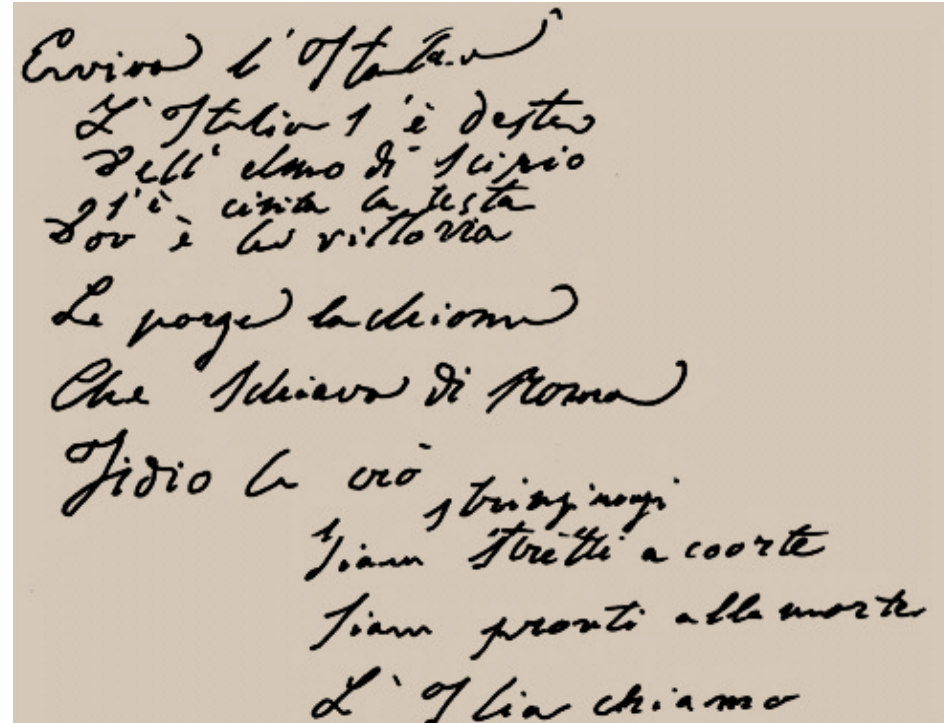 Evviva l'Italia
L'Italia s'è desta
Dell'elmo di Scipio
S'è cinta la testa
Dov'è la vittoria
Le porga la chioma
Che schiava di Roma
Iddio la creò
stringiamoci
Siam stretti a coorte
Siam pronti alla morte
L'Italia chiamò